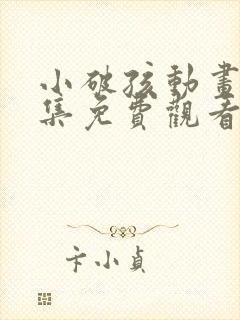 小破孩動畫
集免費觀看
卞小貞